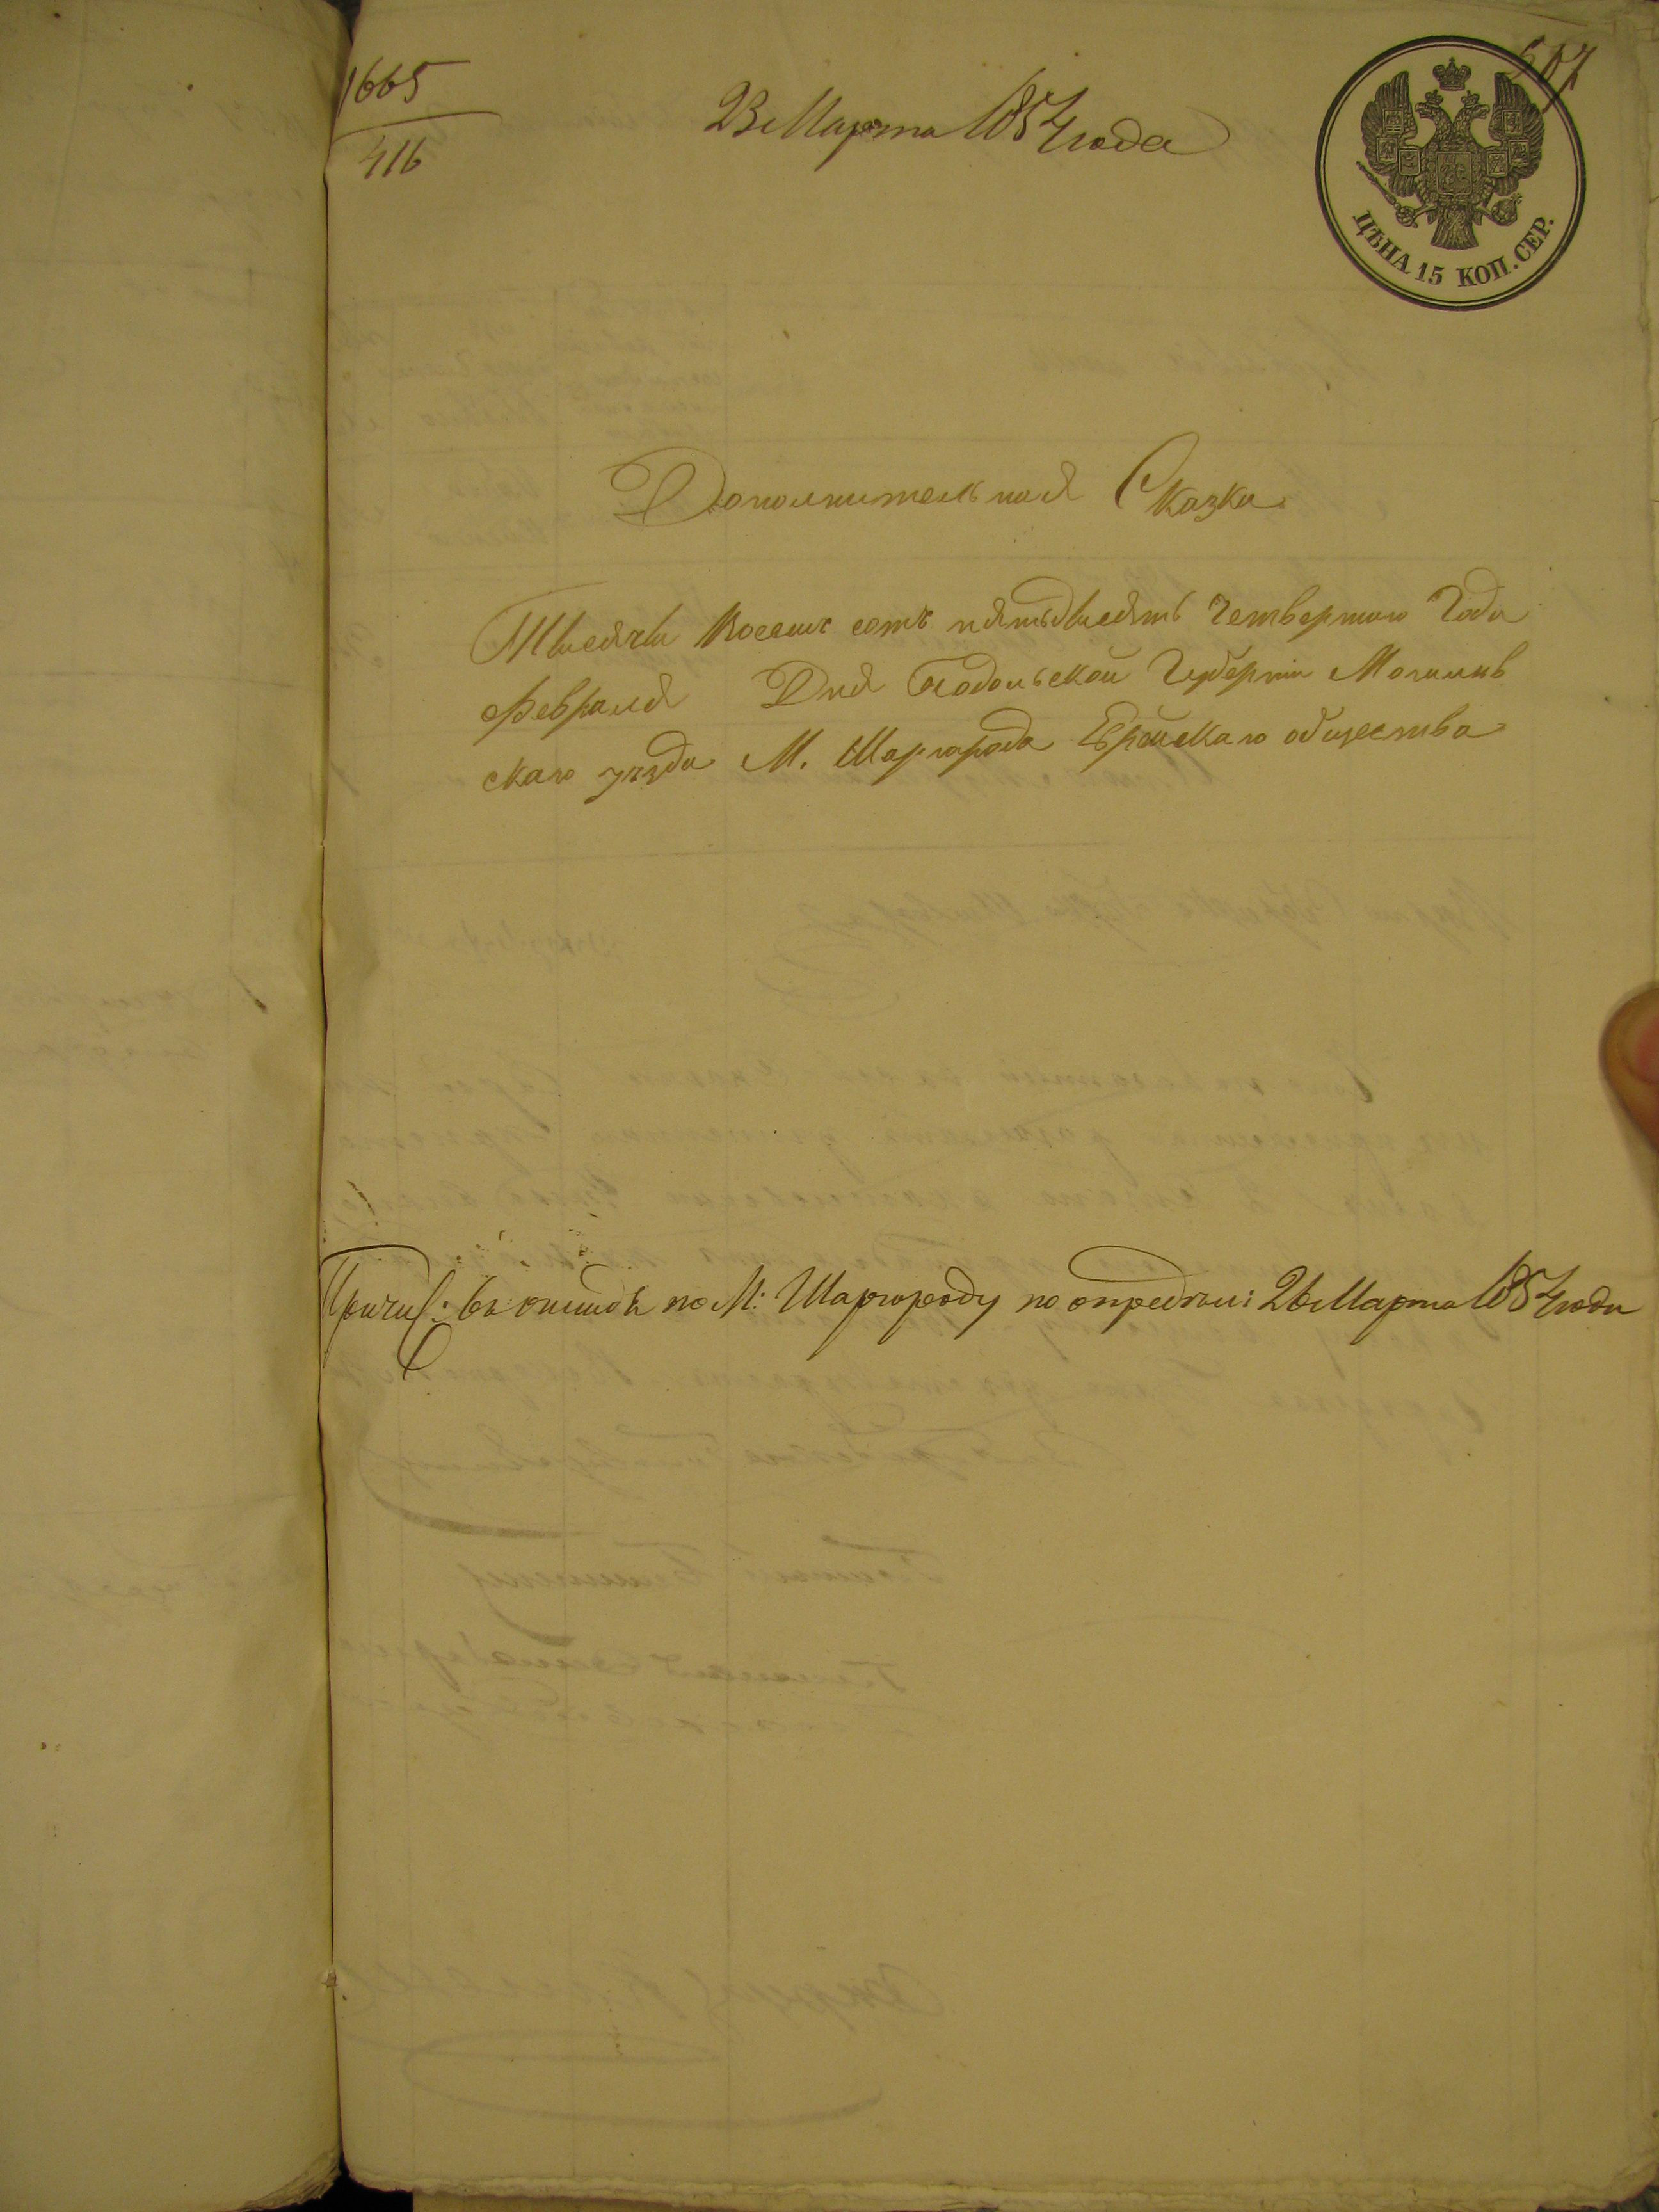 1665
416
23 Марта 1854 года
507
ЦѢНА 15 КОП. СЕР.
Дополнительная Сказка
Тысяча Восемь сотъ пятьдисять Четвертаго Года
Февраля Дня Подольской Губерніи Могилив
скаго уѣзда М. Шаргорода Еврейскаго общества
Причис: въ по М: Шаргороду по опредѣлі: 26 Марта 1854 года